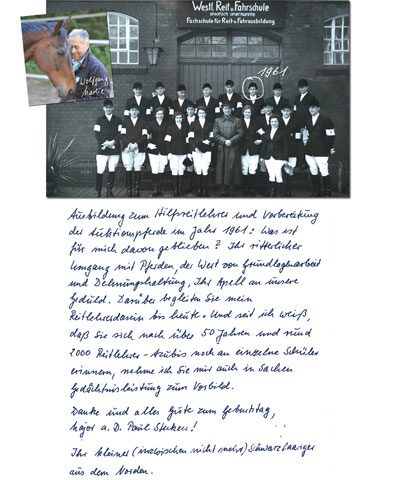 Westf. Reit- u. Fahrschule
staatlich anerkannte
Fachschule für Reit- u. Fahrausbildung
1961
Wolfgang
Marlie
Ausbildung zum Hilfsreitlehrer und Vorbereitung
der Auktionspferde im Jahr 1961: Was ist
für mich davon geblieben? Ihr ritterlicher
Umgang mit Pferden, der Wert von Grundlagenarbeit
und Dehnungshaltung, Ihr Apell an unsere
Geduld. Darüber begleiten Sie mein
Reitlehrerdasein bis heute. Und seit ich weiß,
daß Sie sich nach über 50 Jahren und rund
2000 Reitlehrer-Azubis noch an einzelne Schüler
erinnern, nehme ich Sie mir auch in Sachen
Gedächtnisleistung zum Vorbild.
Danke und alles Gute zum Geburtstag,
Major a. D. Paul Stecken!
Ihr kleiner (inzwischen nicht mehr) Schwarzhaariger
aus dem Norden.